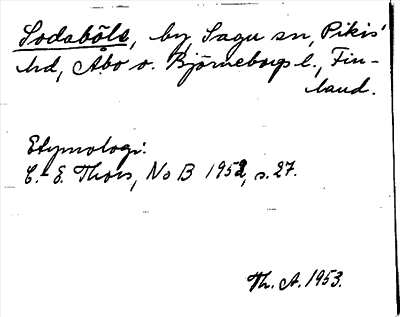 Sodaböle, by, Sagu sn, Pikis'
hd, Åbo o. Björneborgs l., Fin-
land.
Etymologi:
C.-E. Thors, NoB 1952, s. 27.
Th. A. 1953.